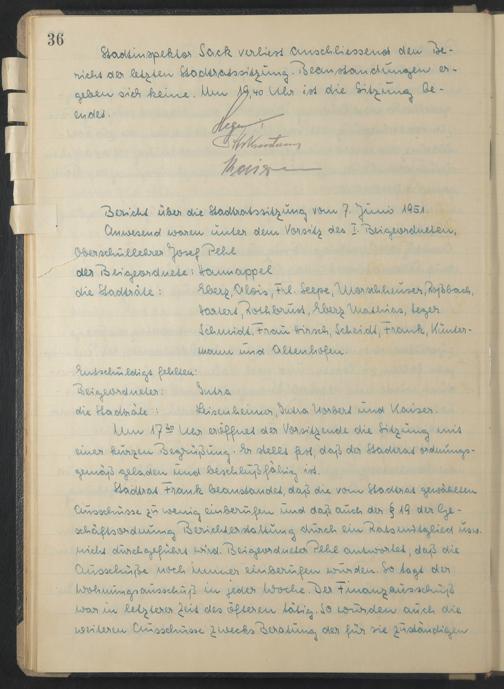 36
Stadtinspektor Sack verliest anschliessend den Be-
richt der letzten Stadtratssitzung. Beanstandungen er-
geben sich keine. Um 19,40 Uhr ist die Sitzung be-
endet.
Bericht über die Stadtratssitzung vom 7. Junio 1951.
Anwesend waren unter dem Vorsitz des I. Beigeordneten,
Oberschullehrer Josef Pehl
der Beigeordnete: Hannappel
die Stadträte: Eberz, Alois, Frl. Seepe, Morschheuser, Roßbach,
Hartert, Rothbrust, Eberz Mathias, Leyer
Schmidt, Frau Hirsch, Scheidt, Frank, Künter-
mann und Altenhofen.
Entschuldigt fehlten:
Beigeordneter: Sutra
die Stadträte: Leisenheimer, Sutra Norbert und Kaiser.
Um 17 30 Uhr eröffnet der Vorsitzende die Sitzung mit
einer kurzen Begrüßung. Er stellt fest, daß der Stadtrat ordnungs-
gemäß geladen und beschlußfähig ist.
Stadtrat Frank beanstandet, daß die vom Stadtrat gewählten
Ausschüsse zu wenig einberufen und daß auch der § 19 der Ge-
schäftsordnung Berichterstattung durch ein Ratsmitglied usw.
nicht durchgeführt wird. Beigeordneter Pehl antwortet, daß die
Ausschüße noch immer einberufen wurden. So tagt der
Wohnungsausschuß in jeder Woche. Der Finanzausschuß
war in letzterer Zeit des öfteren tätig. So würden auch die
weiteren Ausschüsse zwecks Beratung der für sie zuständigen